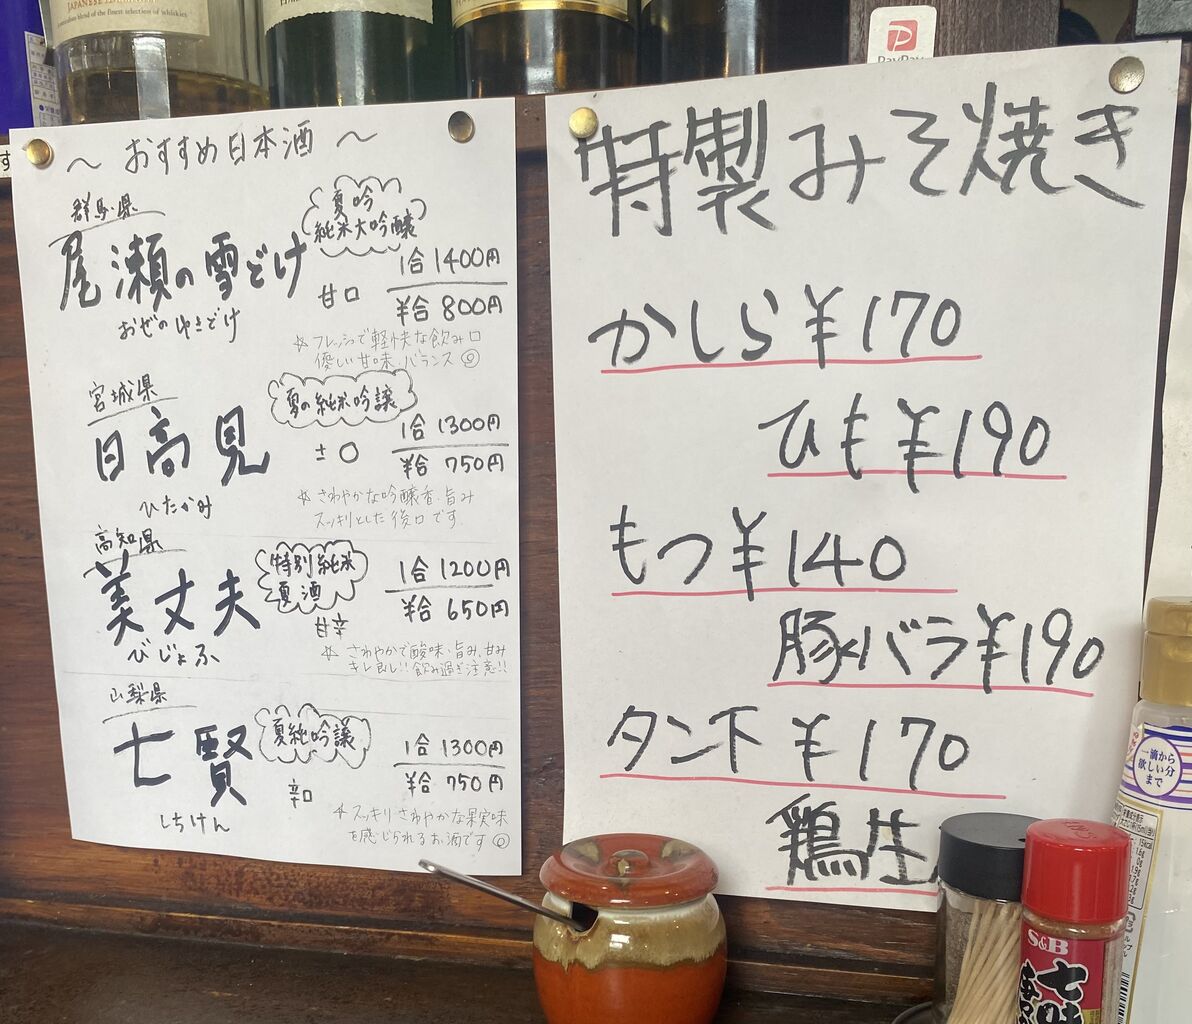 JAPANESE
A traditional blend of the finest selection of whiskies
PayPay
～ おすすめ日本酒 ～
群馬県
夏吟
純米大吟醸
尾瀬の雪どけ
おぜのゆきどけ
甘口
1合 1400円
半合 800円
☆フレッシュで軽快な飲み口
優しい甘味 バランス◎
宮城県
夏の純米吟醸
日高見
ひたかみ
1合 1300円
半合 750円
☆さわやかな吟醸香、旨み
スッキリとした後口です。
高知県
特別純米
夏酒
美丈夫
びじょふ
甘辛
1合 1200円
半合 650円
☆さわやかで酸味、旨み、甘み
キレ良し!!飲み過ぎ注意!!
山梨県
夏純吟醸
七賢
しちけん
辛口
1合 1300円
半合 750円
☆スッキリさわやかな果実味
を感じられるお酒です◎
特製みそ焼き
かしら ¥170
ひも ¥190
もつ ¥140
豚バラ ¥190
タン下 ¥170
鶏生
一滴から
欲しい分
まで
S&B
七味